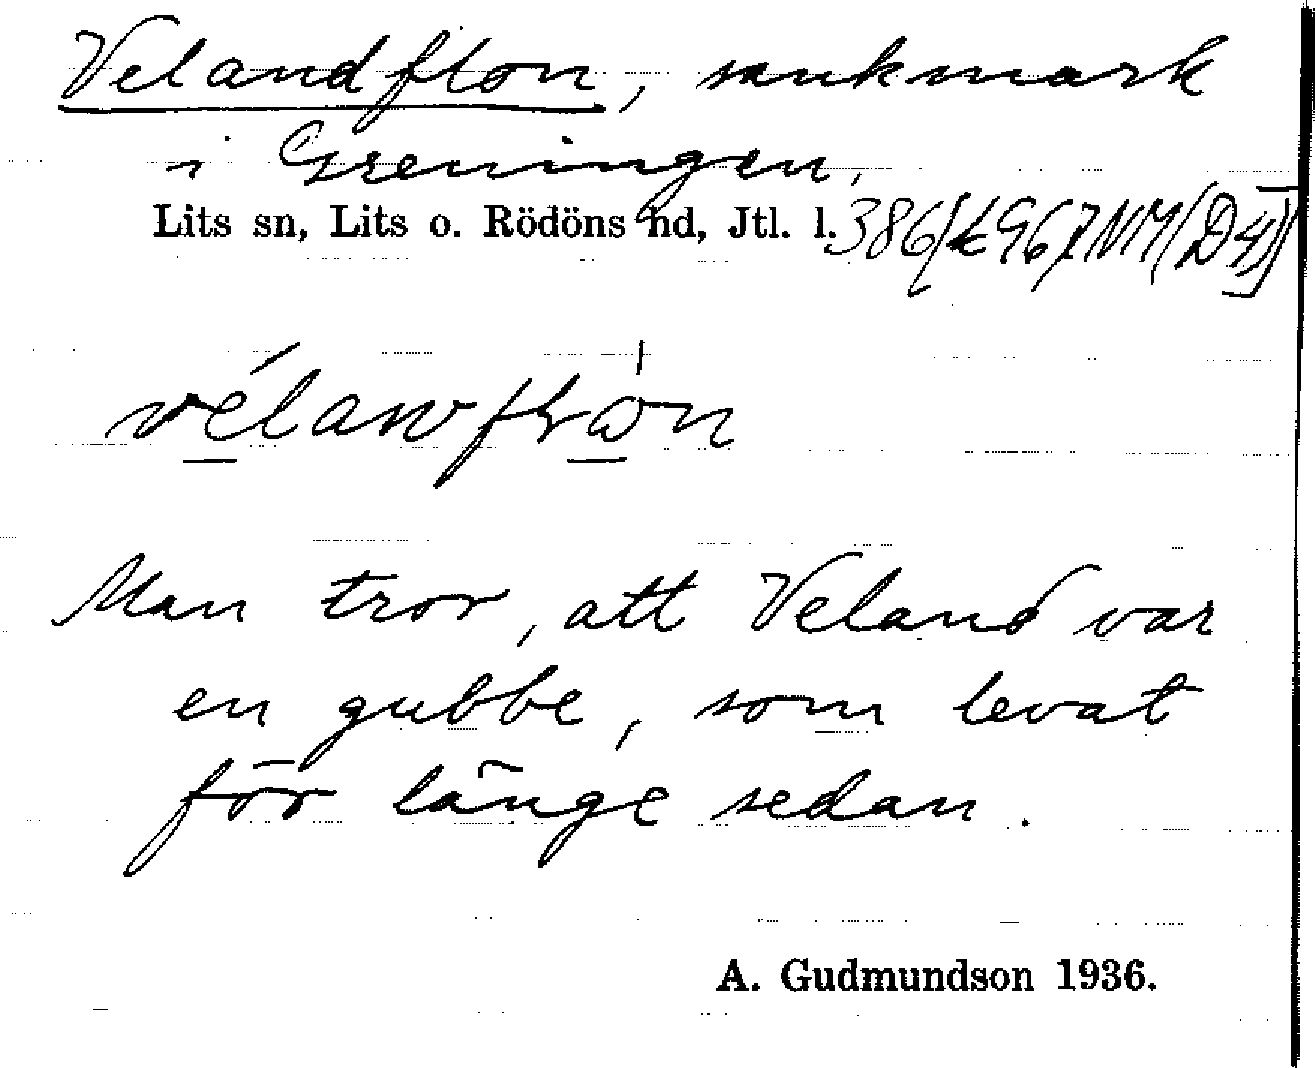 Velandflon, sankmark
i Greningen,
Lits sn, Lits o. Rödöns hd, Jtl. l.
Man tror, att Veland var
en gubbe, som levat
för länge sedan.
A. Gudmundson 1936.